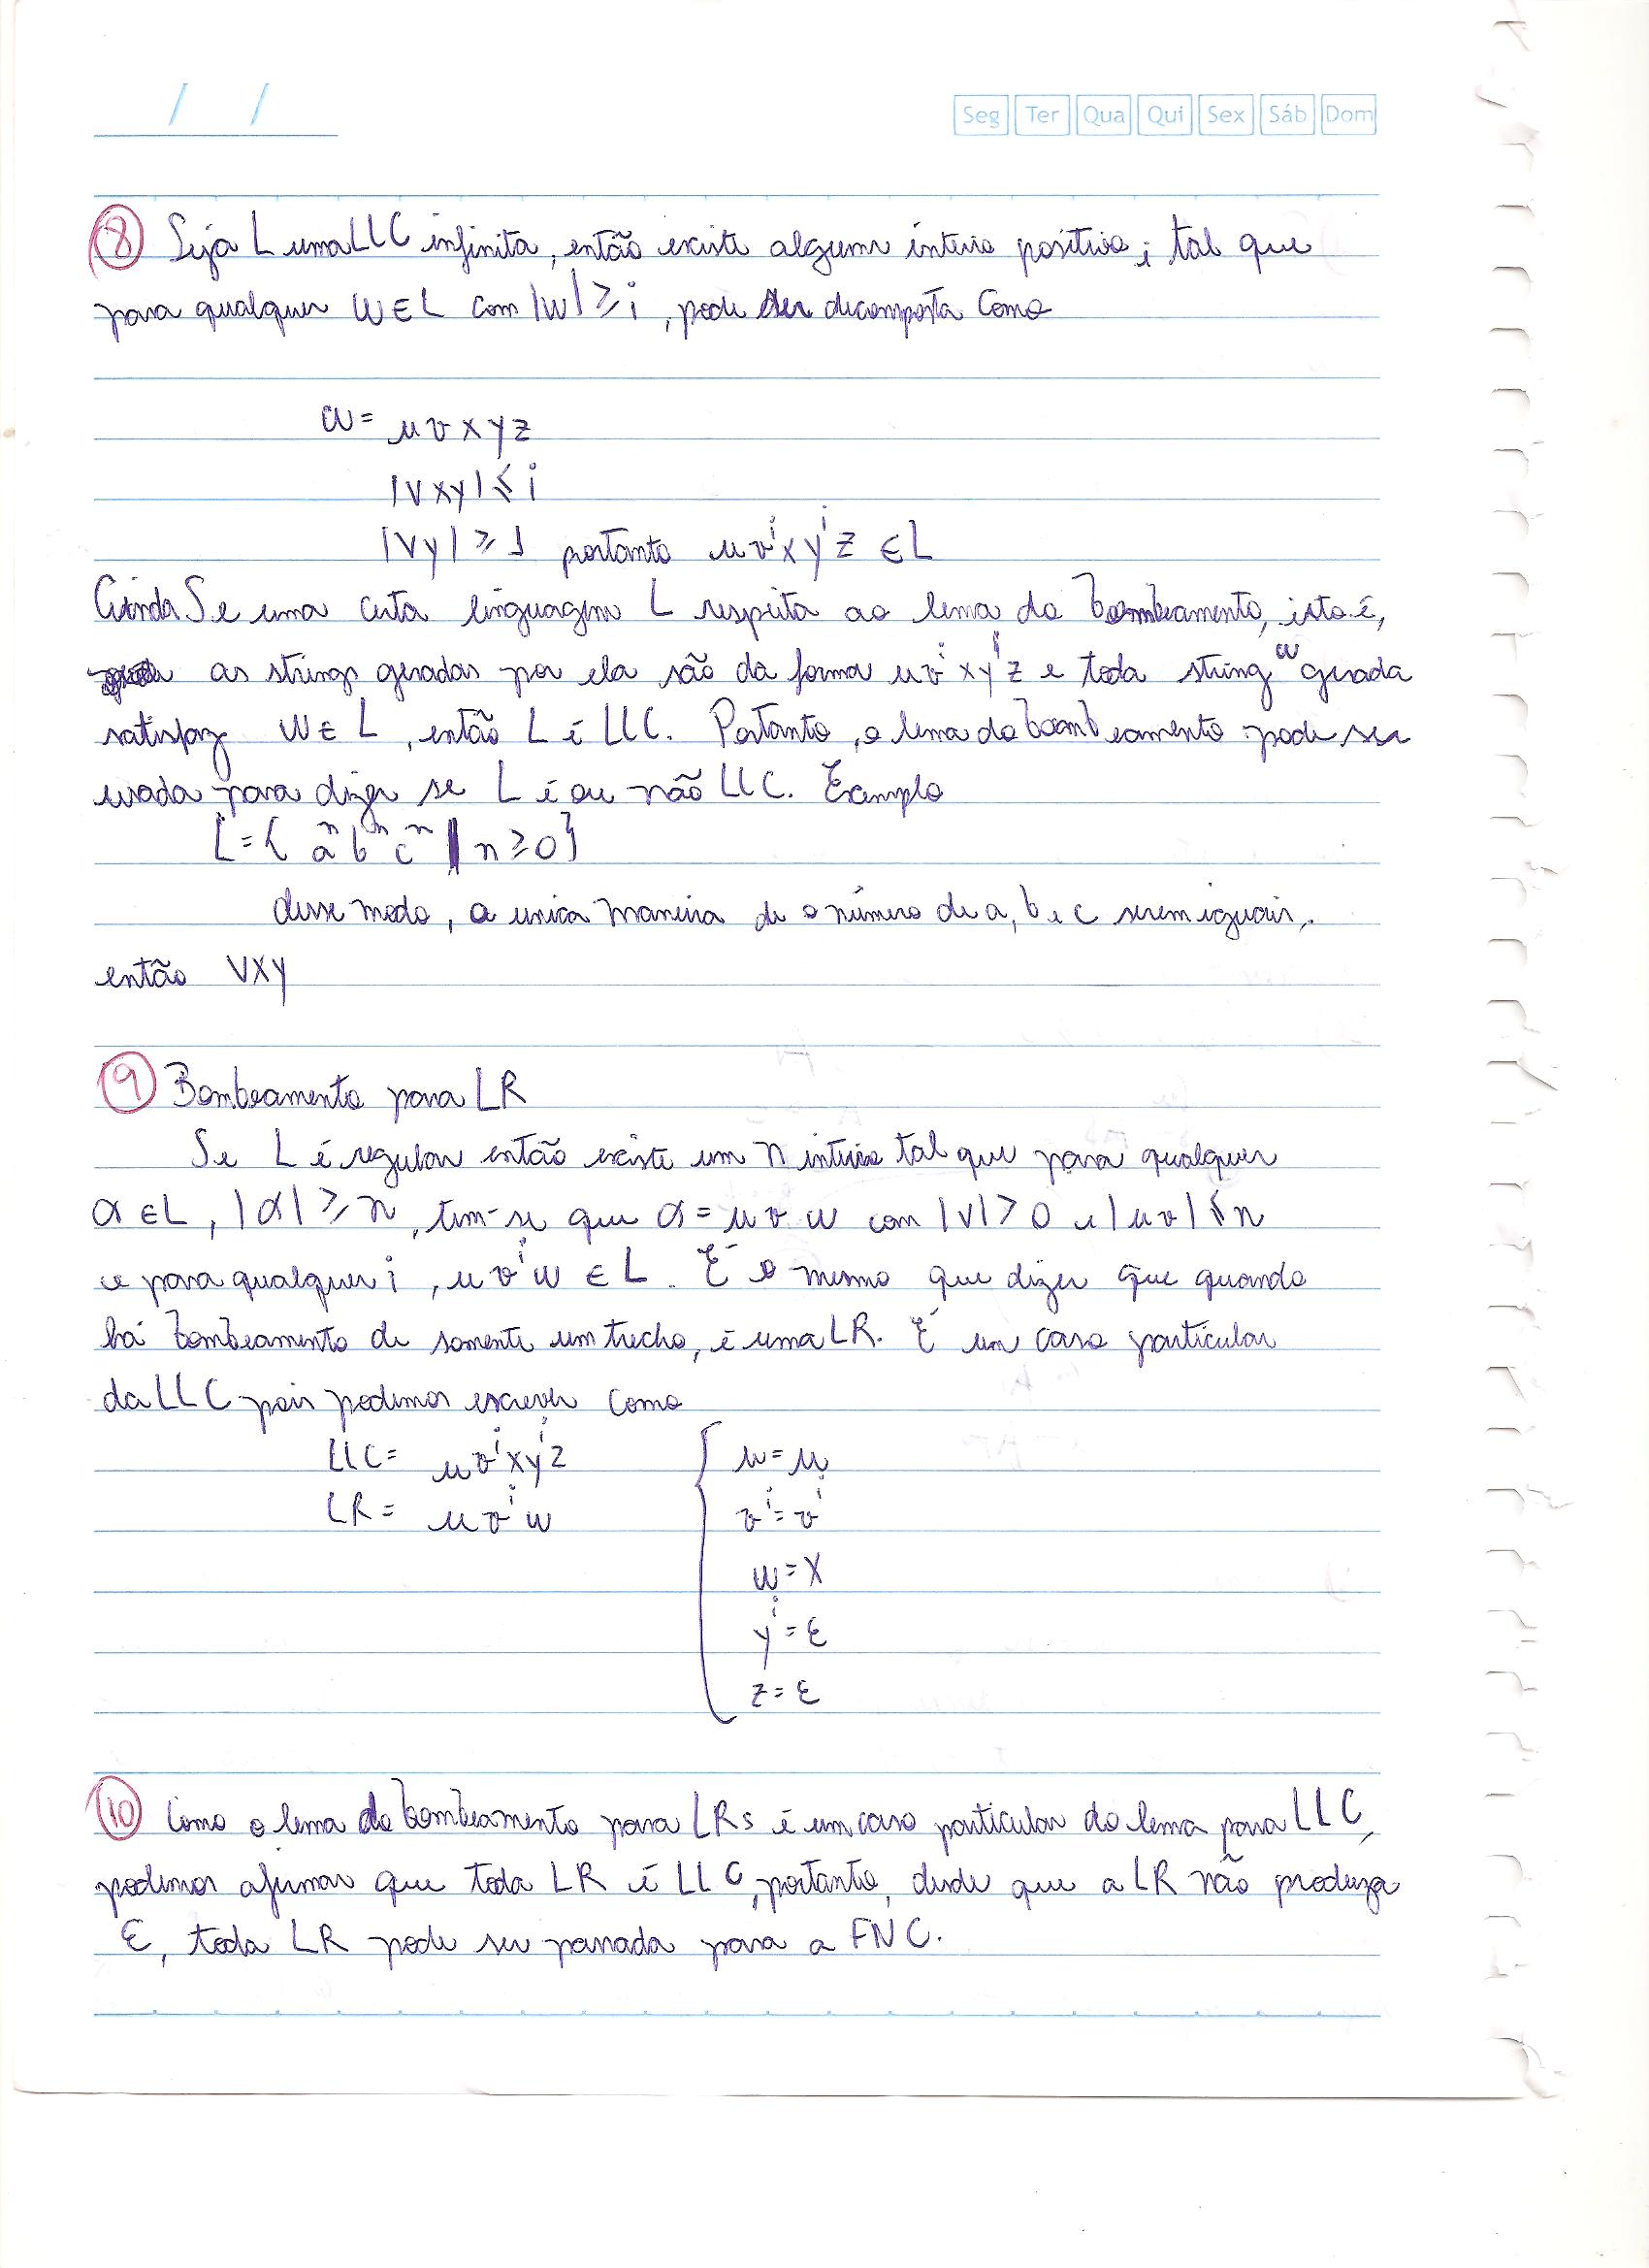 / /
Seg Ter Qua Qui Sex Sáb Dom
8 Seja L uma LLC infinita, então existe algum inteiro positivo i tal que
para qualquer w ∈ L com |w| ≥ i, pode ser decomposta como
w = u v x y z
|vxy| ≤ i
|vy| ≥ 1 portanto u vⁱ x yⁱ z ∈ L
Ainda Se uma certa linguagem L respeita ao lema do bombeamento, isto é,
as strings geradas por ela são da forma u vⁱ x yⁱ z e toda string w gerada
satisfaz w ∈ L, então L é LLC. Portanto, o lema do bombeamento pode ser
usado para dizer se L é ou não LLC. Exemplo
L = { aⁿ bⁿ cⁿ | n ≥ 0 }
desse modo, a unica maneira de o número de a, b e c serem iguais,
então vxy
9 Bombeamento para LR
Se L é regular então existe um n inteiro tal que para qualquer
α ∈ L, |α| ≥ n, tem-se que α = u v w com |v| > 0 e |uv| ≤ n
e para qualquer i, u vⁱ w ∈ L. É o mesmo que dizer que quando
há bombeamento de somente um trecho, é uma LR. É um caso particular
da LLC pois podemos escrever como
LLC = u vⁱ x yⁱ z { u = u
LR = u vⁱ w vⁱ = vⁱ
w = x
yⁱ = ε
z = ε
10 Como o lema do bombeamento para LRs é um caso particular do lema para LLC,
podemos afirmar que toda LR é LLC, portanto, desde que a LR não produza
ε, toda LR pode ser passada para a FNC.